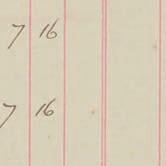 7 16
7 16